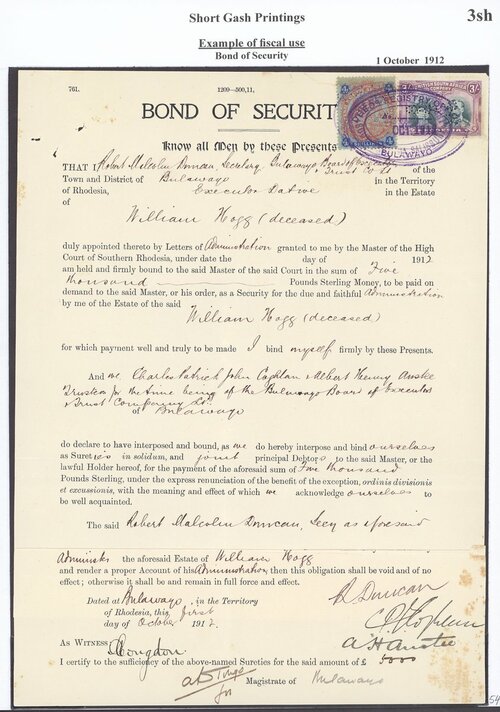 Short Gash Printings
3sh
Example of fiscal use
Bond of Security
1 October 1912
761.
1200—500,11.
BOND OF SECURIT
Know all Men by these Presents
THAT I, Robert Malcolm Duncan, Secretary, Bulawayo Board of Executors
& Trust Co Ld of the
Town and District of Bulawayo in the Territory
of Rhodesia, Executor Dative in the Estate
of
William Hogg (deceased)
duly appointed thereto by Letters of Administration granted to me by the Master of the High
Court of Southern Rhodesia, under date the day of 1912
am held and firmly bound to the said Master of the said Court in the sum of Five
thousand Pounds Sterling Money, to be paid on
demand to the said Master, or his order, as a Security for the due and faithful Administration
by me of the Estate of the said
William Hogg (deceased)
for which payment well and truly to be made I bind myself firmly by these Presents.
And we Charles Patrick John Coghlan & Albert Henry
Trustees for the time being of the Bulawayo Board of Executors
& Trust Company Ld.
of Bulawayo
do declare to have interposed and bound, as we do hereby interpose and bind ourselves
as Sureties in solidum, and joint principal Debtors to the said Master, or the
lawful Holder hereof, for the payment of the aforesaid sum of Five thousand
Pounds Sterling, under the express renunciation of the benefit of the exception, ordinis divisionis
et excussionis, with the meaning and effect of which we acknowledge ourselves to
be well acquainted.
The said Robert Malcolm Duncan, Secy as aforesaid
Administer the aforesaid Estate of William Hogg
and render a proper Account of his Administration, then this obligation shall be void and of no
effect; otherwise it shall be and remain in full force and effect.
Dated at Bulawayo, in the Territory
of Rhodesia, this first
day of October 1912.
R Duncan
As Witness:
Congdon
I certify to the sufficiency of the above-named Sureties for the said amount of £ 5000
Magistrate of Bulawayo
54